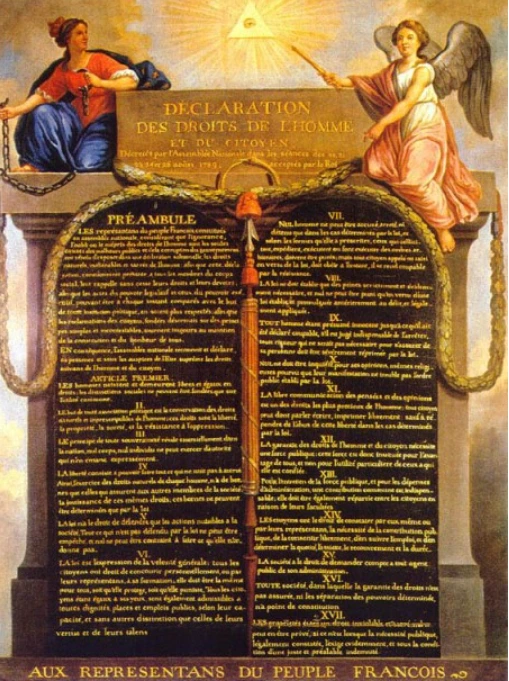 DECLARATION
DES DROITS DE L'HOMME
ET DU CITOYEN,
Décrétés par l'Assemblée Nationale dans les séances des
août 1789, acceptés par le Roi
PRÉAMBULE
LES représentans du peuple François, constitués
en assemblée nationale, considérant que l'ignorance,
l'oubli ou le mépris des droits de l'homme sont les seules
causes des malheurs publics et de la corruption des gouvernemens
ont résolu d'exposer dans une déclaration solemnelle, les droits
naturels, inaliénables et sacrés de l'homme; afin que cette déclaration,
constamment présente a tous les membres du corps
social, leur rappelle sans cesse leurs droits et leurs devoirs;
afin que les actes du pouvoir législatif et ceux du pouvoir
exécutif, pouvant être à chaque instant comparés avec le but
de toute institution politique, en soient plus respectés; afin que
les réclamations des citoyens, fondées désormais sur des principes
simples et incontestables, tournent toujours au maintien
de la constitution et du bonheur de tous.
EN conséquence, l'assemblée nationale reconnoit et déclare,
en présence et sous les auspices de l'Etre suprême les droits
suivans de l'homme et du citoyen.
ARTICLE PREMIER.
LES hommes naissent et demeurent libres et égaux en
droits; les distinctions sociales ne peuvent être fondées que sur
l'utilité commune.
II.
LE but de toute association politique est la conservation des droits
naturels et imprescriptibles de l'homme; ces droits sont la liberté,
la propriété, la sureté, et la résistance à l'oppression.
III.
LE principe de toute souveraineté réside essentiellement dans
la nation, nul corps, nul individu ne peut exercer d'autorité
qui n'en émane expressément.
IV.
LA liberté consiste à pouvoir faire tout ce qui ne nuit pas à autrui.
Ainsi, l'exercice des droits naturels de chaque homme, n'a de bornes
que celles qui assurent aux autres membres de la société
la jouissance de ces mêmes droits; ces bornes ne peuvent
être déterminées que par la loi.
V.
LA loi n'a le droit de défendre que les actions nuisibles à la
société. Tout ce qui n'est pas défendu par la loi ne peut être
empêché, et nul ne peut être contraint à faire ce qu'elle
n'ordonne pas.
VI.
LA loi est l'expression de la volonté générale; tous les
citoyens ont droit de concourir personnellement, ou par
leurs représentans, à sa formation; elle doit être la même
pour tous, soit qu'elle protege, soit qu'elle punisse. Tous les
citoyens étant égaux à ses yeux, sont également admissibles à
toutes dignités, places et emplois publics, selon leur capacité,
et sans autres distinction que celles de leurs
vertus et de leurs talens.
VII.
NUL homme ne peut être accusé, arrêté ni
détenu que dans les cas déterminés par la loi, et
selon les formes qu'elle a prescrites, ceux qui sollicitent,
expédient, exécutent ou font exécuter des ordres
arbitraires, doivent être punis; mais tout citoyen appelé ou saisi
en vertu de la loi, doit obéir a l'instant, il se rend coupable
par la résistance.
VIII.
LA loi ne doit établir que des peines strictement et évidemment
nécessaires, et nul ne peut être puni qu'en vertu d'une
loi établie et promulguée antérieurement au délit, et
légalement appliquée.
IX.
TOUT homme étant présumé innocent jusqu'à ce qu'il ait
été déclaré coupable, s'il est jugé indispensable de l'arrêter,
toute rigueur qui ne serait pas nécessaire pour s'assurer de
sa personne doit être sévèrement réprimée par la loi.
X.
NUL ne doit être inquiété pour ses opinions, mêmes
religieuses pourvu que leur manifestation ne trouble pas l'ordre
public établi par la loi.
XI.
LA libre communication des pensées et des opinions
est un des droits les plus précieux de l'homme; tout citoyen
peut donc parler, écrire, imprimer librement; sauf à
répondre de l'abus de cette liberté dans les cas déterminés
par la loi.
XII.
LA garantie des droits de l'homme et du citoyen nécessite
une force publique; cette force est donc instituée pour
l'avantage de tous, et non pour l'utilité particulière de ceux a qui
elle est confiée.
XIII.
POUR l'entretien de la force publique, et pour les dépenses
d'administration, une contribution commune est
indispensable; elle doit être également répartie entre les citoyens en
raison de leurs facultées.
XIV.
LES citoyens ont le droit de constater par eux même ou
par leurs représentans, la nécessité de la contribution
publique, de la consentir librement, d'en suivre l'emploi, et d'en
déterminer la quotité, l'assiette, le recouvrement et la durée.
XV.
LA société a le droit de demander compte a tout agent
public de son administration.
XVI.
TOUTE société, dans laquelle la garantie des droits n'est
pas assurée, ni la séparation des pouvoirs déterminée,
n'a point de constitution.
XVII.
LES propriétés étant un droit inviolable et sacré, nul ne
peut en être privé, si ce n'est lorsque la nécessité publique,
légalement constatée, l'exige évidemment, et sous la condition
d'une juste et préalable indemnité.
AUX REPRESENTANS DU PEUPLE FRANCOIS